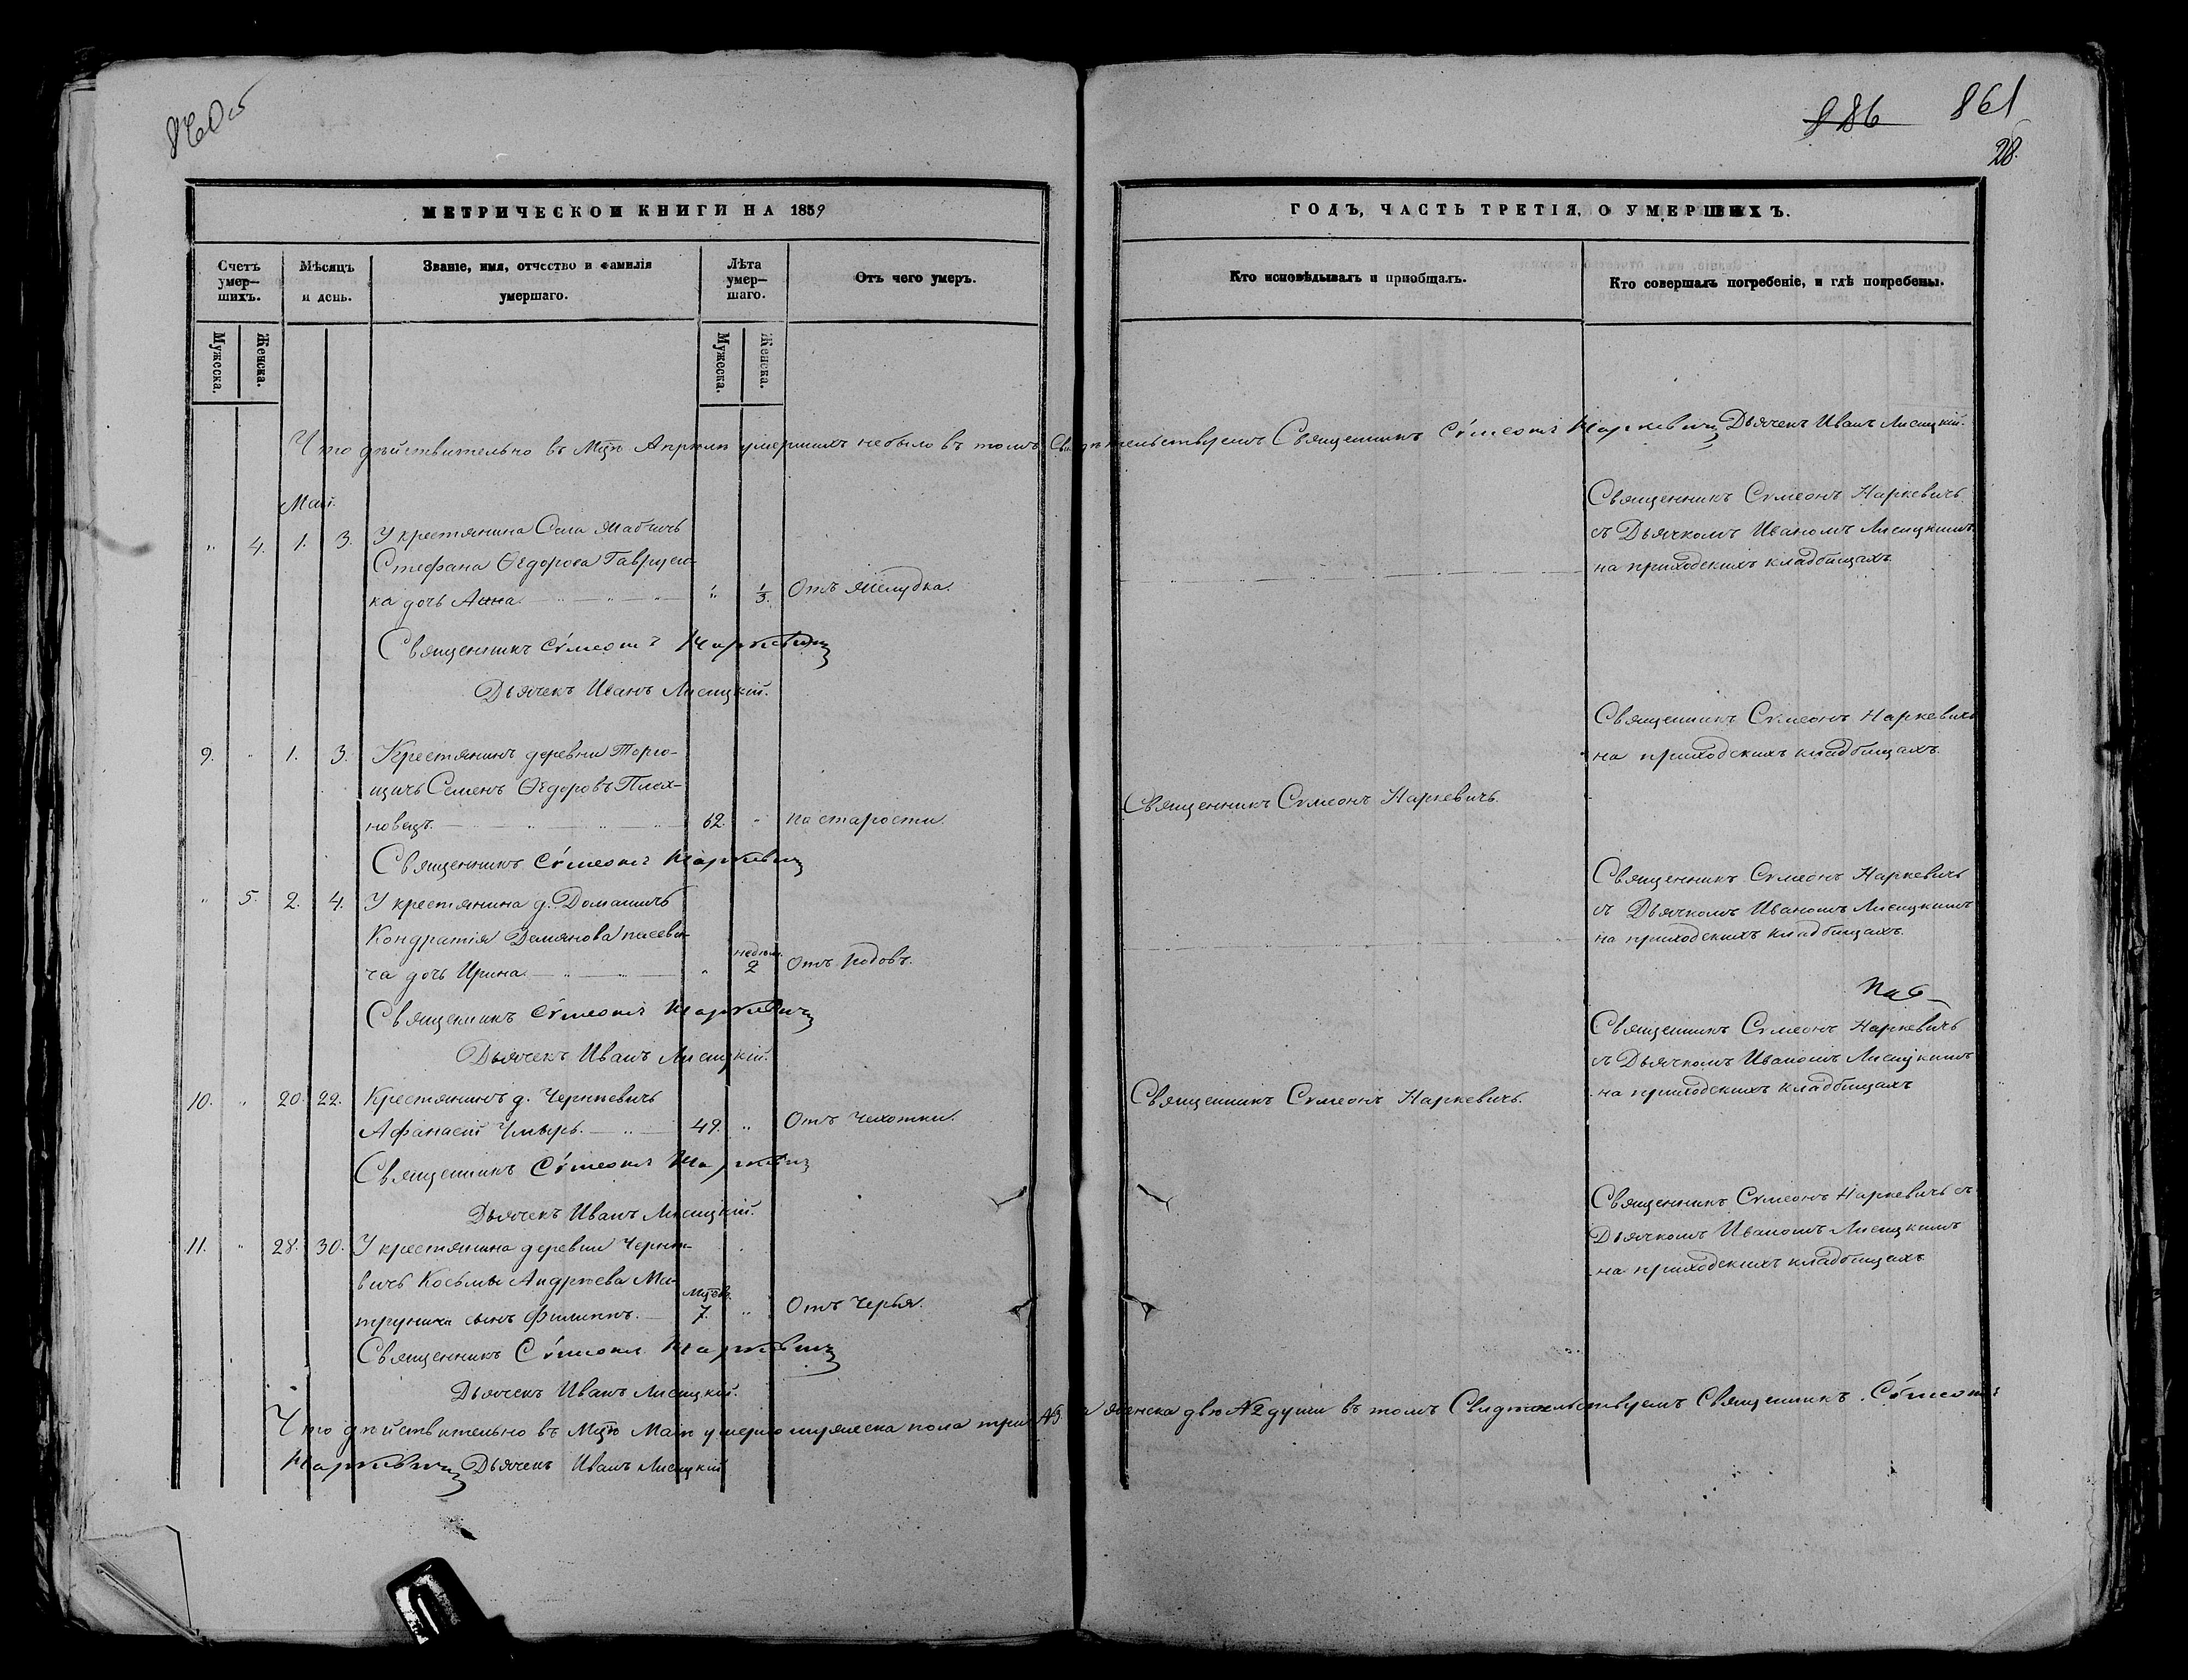 860 об
886 861
28.
МЕТРИЧЕСКОЙ КНИГИ НА 1859
ГОДЪ, ЧАСТЬ ТРЕТІЯ, О УМЕРШИХЪ.
Счетъ умер-
шихъ.
Мѣсяцъ
и день.
Званіе, имя, отчество и фамилія
умершаго.
Лѣта
умер-
шаго.
Отъ чего умеръ.
Кто исповѣдывалъ и пріобщалъ.
Кто совершалъ погребеніе, и гдѣ погребены.
Мужеска.
Женска.
Мужеска.
Женска.
Что дѣйствительно въ Мцѣ Апрѣлѣ умершихъ небыло въ томъ Свидѣтельствуемъ Священникъ Сѵмеонъ Наркевичъ Дьячекъ Иванъ Лисицкій.
Май.
" 4. 1. 3. У крестянина Села
Стефана Ѳедорова Гаврусен-
ка дочь Анна. " 1/3. Отъ желудка.
Священникъ Сѵмеонъ Наркевичъ
съ Дьячкомъ Иваномъ Лисицкимъ
на приходскихъ кладбищахъ.
Священникъ Сѵмеонъ Наркевичъ
Дьячекъ Иванъ Лисицкій.
9. " 1. 3. Крестянинъ деревни Торго-
щичъ Семенъ Ѳедоровъ Плох-
новецъ. 62. " по старости.
Священникъ Сѵмеонъ Наркевичъ.
Священникъ Сѵмеонъ Наркевичъ
на приходскихъ кладбищахъ.
Священникъ Сѵмеонъ Наркевичъ
" 5. 2. 4. У крестянина д. Домашичъ
Кондратія Демянова
ча дочь Ирина. " недѣл. 2 Отъ родовъ.
Священникъ Сѵмеонъ Наркевичъ
съ Дьячкомъ Иваномъ Лисицкимъ
на приходскихъ кладбищахъ.
Священникъ Сѵмеонъ Наркевичъ
Дьячекъ Иванъ Лисицкій.
10. " 20. 22. Крестянинъ д. Чернѣвичъ
Афанасій Чмырь. 49. " Отъ Чихотки.
Священникъ Сѵмеонъ Наркевичъ.
Священникъ Сѵмеонъ Наркевичъ
съ Дьячкомъ Иваномъ Лисицкимъ
на приходскихъ кладбищахъ
Священникъ Сѵмеонъ Наркевичъ
Дьячекъ Иванъ Лисицкій.
11. " 28. 30. У крестянина деревни Чернѣ-
вичъ Косьмы Андрѣева Ма-
трунича сынъ Филиппъ. Мцовъ. 7. " Отъ Черья.
Священникъ Сѵмеонъ Наркевичъ съ
Дьячкомъ Иваномъ Лисицкимъ
на приходскихъ кладбищахъ
Священникъ Сѵмеонъ Наркевичъ
Дьячекъ Иванъ Лисицкій.
Что дѣйствительно въ Мцѣ Маѣ умерло мужеска пола три №3. а женска двѣ №2 души въ томъ Свидѣтельствуемъ Священникъ Сѵмеонъ
Наркевичъ Дьячекъ Иванъ Лисицкій